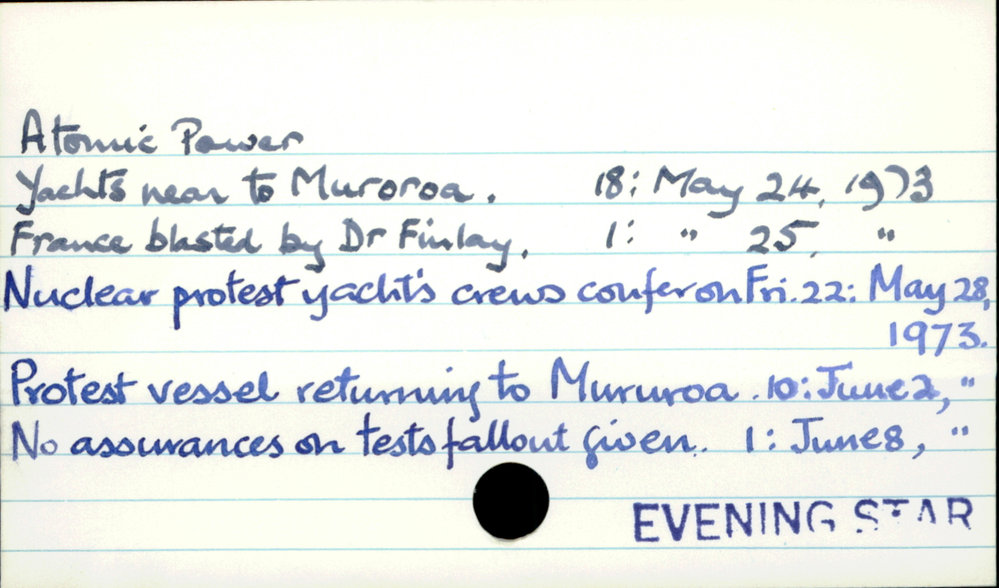 Atomic Power
Yachts near to Mururoa. 18: May 24, 1973
France blasted by Dr Finlay. 1: " 25, "
Nuclear protest yacht's crews confer on Fri. 22: May 28,
1973.
Protest vessel returning to Mururoa. 10: June 2, "
No assurances on tests fallout given. 1: June 8, "
EVENING STAR